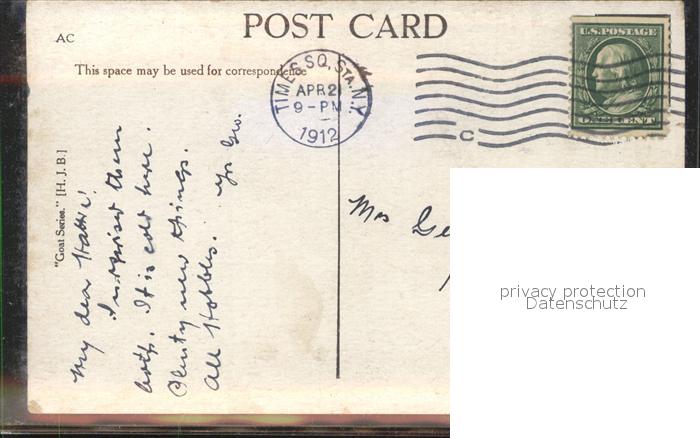 POST CARD
AC
This space may be used for correspondence
TIMES SQ. STA. N.Y.
APR 2
9 - PM
1912
C
U.S. POSTAGE
ONE CENT
"Goat Series." [H. J. B.]
My dear Hattie!
I surprised them
both. It is cold here.
Plenty new things.
All Hobbles. Yr Geo.
Mrs Ge
privacy protection
Datenschutz